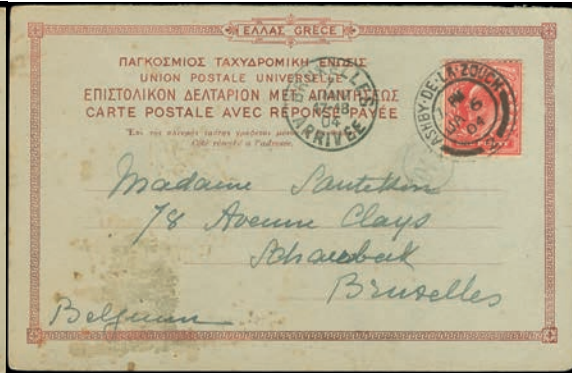 ΕΛΛΑΣ GRÈCE
ΠΑΓΚΟΣΜΙΟΣ ΤΑΧΥΔΡΟΜΙΚΗ ΕΝΩΣΙΣ
UNION POSTALE UNIVERSELLE
ΕΠΙΣΤΟΛΙΚΟΝ ΔΕΛΤΑΡΙΟΝ ΜΕΤ' ΑΠΑΝΤΗΣΕΩΣ
CARTE POSTALE AVEC RÉPONSE PAYÉE
Côté réservé à l'adresse.
BRUXELLES
17-18
04
ARRIVÉE
ASHBY-DE-LA-ZOUCH
PM
JA 6
04
Madame
78 Avenue Clays
Schaerbeek
Bruxelles
Belgium